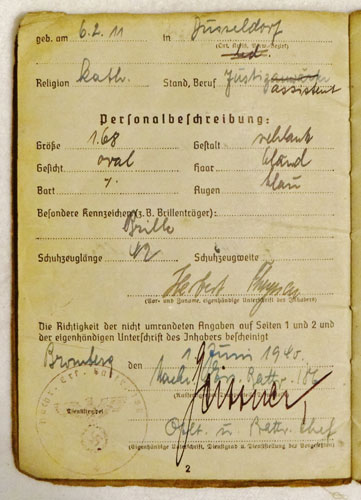 geb. am 6.2.11 in Düsseldorf
(Ort, Kreis, Verw.-Bezirk)
Religion kath. Stand, Beruf Justiz
assistent
Personalbeschreibung:
Größe 1.68 Gestalt schlank
Gesicht oval Haar blond
Bart Augen blau
Besondere Kennzeichen (z. B. Brillenträger):
Brille
Schuhzeuglänge 42 Schuhzeugweite
Herbert
(Vor- und Zuname, eigenhändige Unterschrift des Inhabers)
Die Richtigkeit der nicht umrandeten Angaben auf Seiten 1 und 2 und
der eigenhändigen Unterschrift des Inhabers bescheinigt
Bromberg den 1. Juni 1940.
Dienstsiegel
Oblt. u. Battr. Chef
(Eigenhändige Unterschrift, Dienstgrad u. Dienststellung des Vorgesetzten)
2